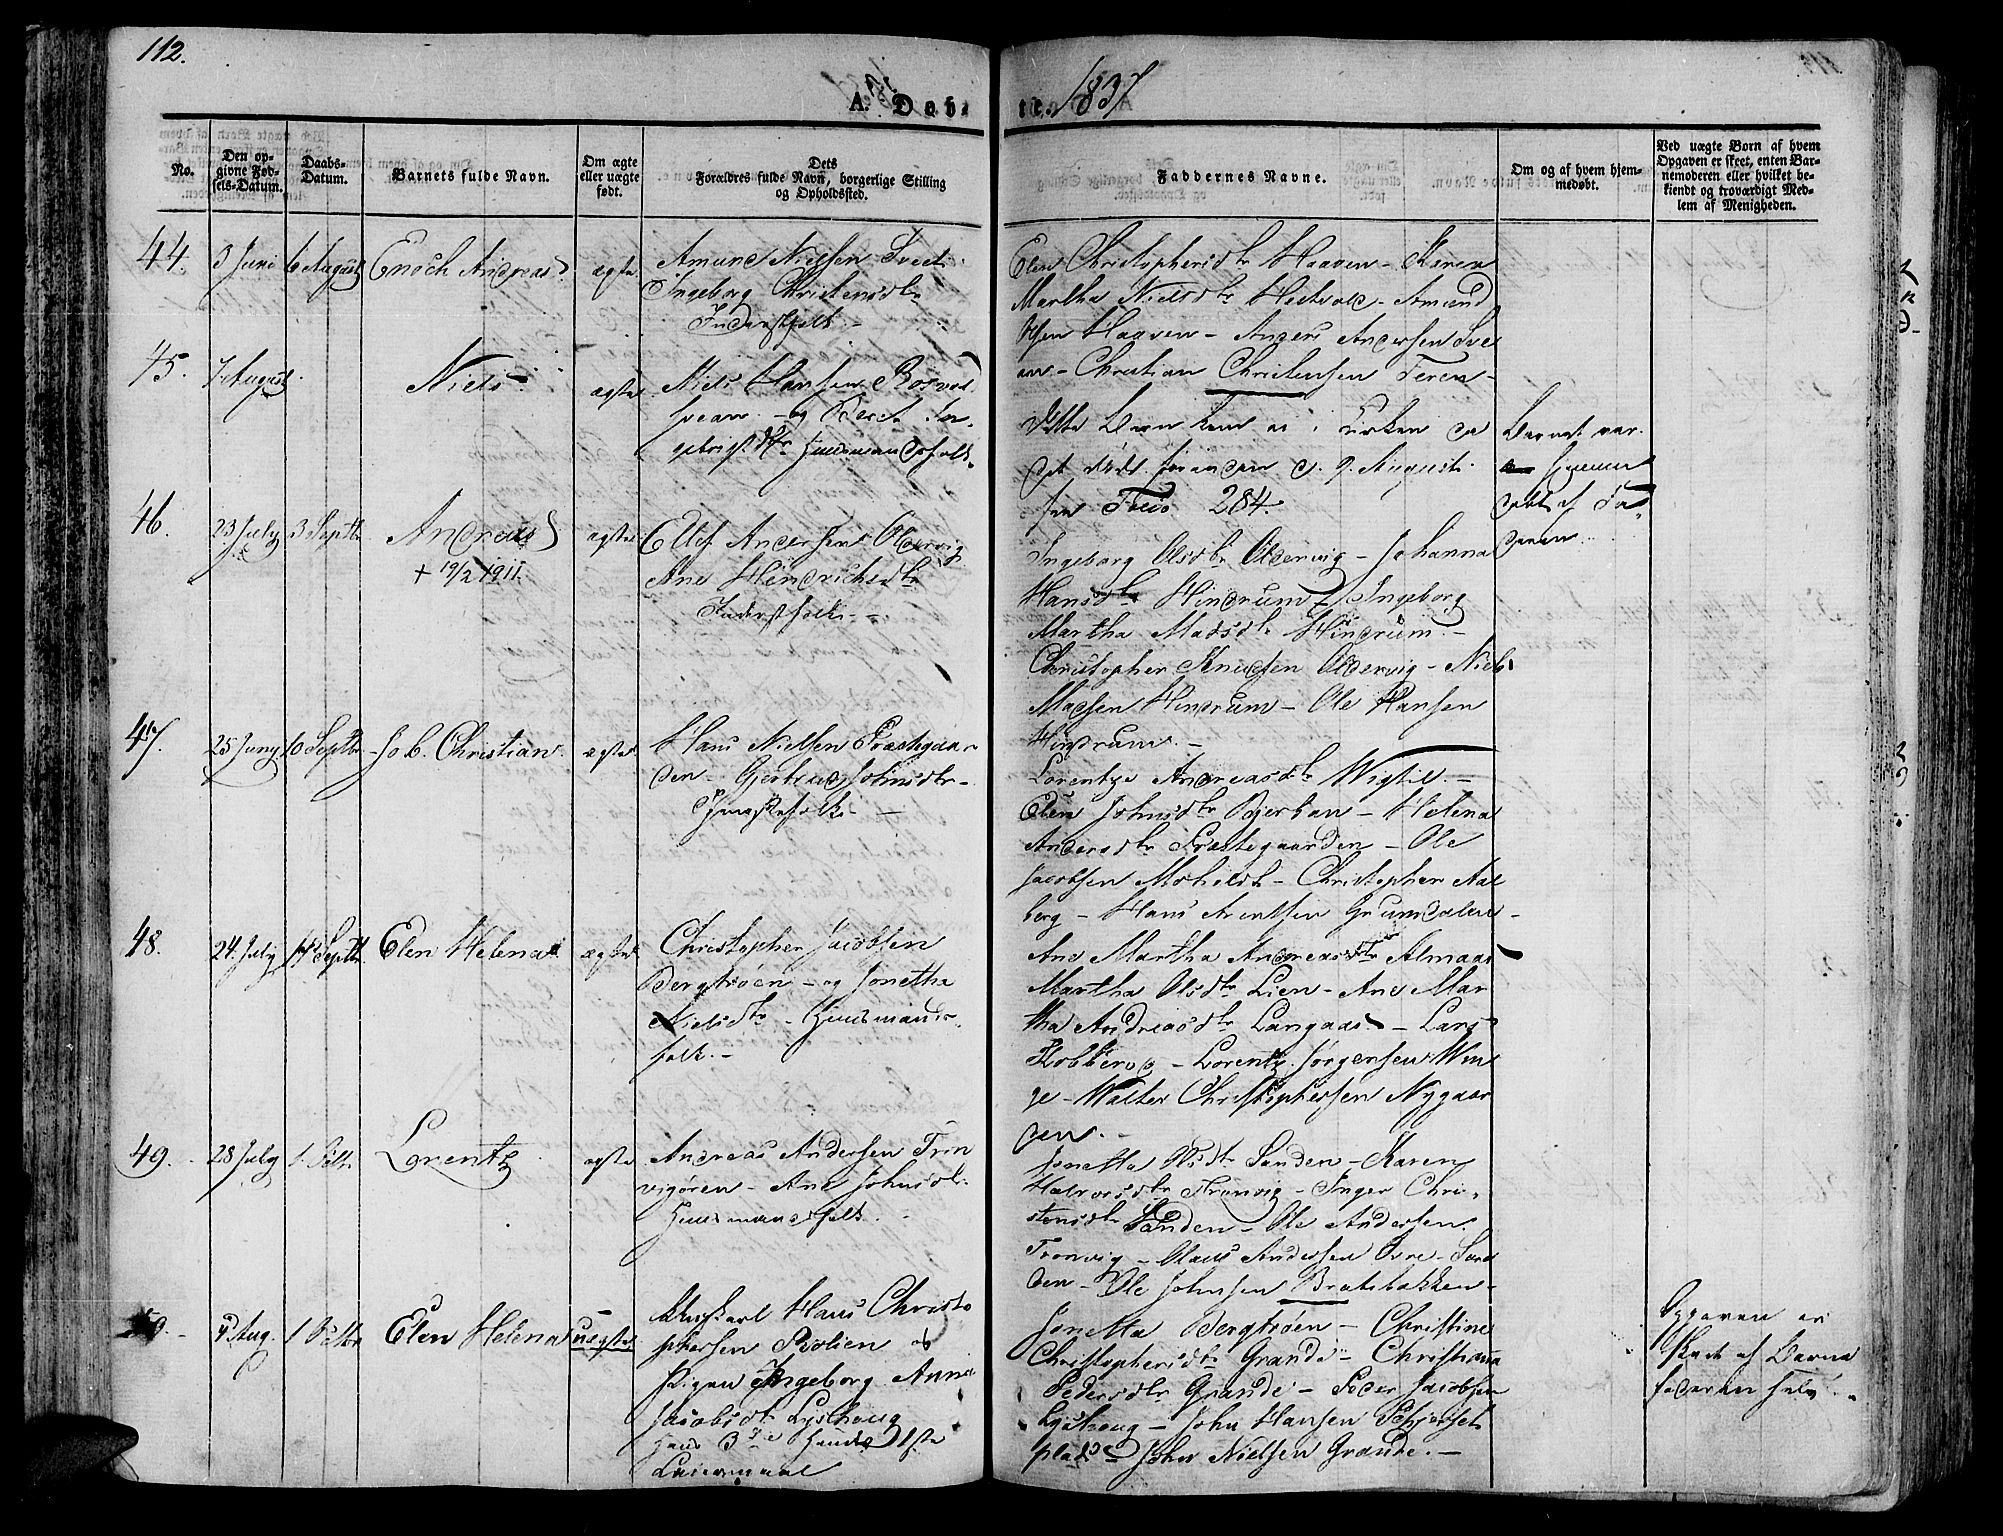 112.
A. Døbte. 1837
No.
Den opgivne Fødsels-Datum.
Daabs-Datum.
Barnets fulde Navn.
Om ægte eller uægte født.
Dets Forældres fulde Navn, borgerlige Stilling og Opholdssted.
Faddernes Navne.
Om og af hvem hjemmedøbt.
Ved uægte Børn af hvem Opgaven er skeet, enten Barnemoderen eller hvilket bekiendt og troværdigt Medlem af Menigheden.
44.
3 Juni
6 August
Enoch Andreas
ægte
Amund Nielsen Sveet
Ingeborg Christensdtr
Inderstfolk
Elen Christophersdtr Haaven - Karen
Martha Nielsdtr - Amund
Olsen Haaven - Anders Andersen Sve
an - Christian Christensen Teren -
45.
7 August
Niels
ægte
Niels Hansen
svean - og Berit In-
gebrigtsdtr Huusmandsfolk
Dette Barn kom ei i Kirken da
det døde d. 9 August
see Folio 284.
Barnet var
hjemme
døbt af Fa
deren
46.
23 July
3 Septb
Andreas
+ 19/2 1911.
ægte
Ellef Andersen Oldervig
Ane Hendrichsdtr
Inderstfolk -
Ingeborg Olsdtr Oldervig - Johanna
Hansdtr Hindrum - Ingeborg
Martha Madsdtr Hindrum -
Christopher Knudsen Oldervig - Niels
Madsen Hindrum - Ole Hansen
Hindrum. -
47.
25 Juny
10 Septbr
Job. Christian
ægte
Hans Nielsen Præstegaar
den - Gjertrud Johnsdtr -
Lorentze Andreasdtr Wigtil. -
Elen Johnsdtr Bjerkan - Helena
Andersdtr Præstegaarden - Ole
Jacobsen - Christopher Aal
berg - Hans Arentsen
48.
24. July
17 Septb.
Elen Helena
ægte
Christopher Jacobsen
Bergtrøen - og Jonetha
Nielsdtr - Huusmands-
folk. -
Ane Martha Andreasdtr Almaas
Martha Olsdtr Lien - Ane Mar
tha Andreasdtr Langaas - Lars
Flobberg - Lorentz Jørgensen Win
ge - Walter Christophersen Nygaar
den. -
49.
28 July
1 Octb.
Lorentz
ægte
Andreas Andersen Tron
vigøren - Ane Johnsdt.
Huusmandsfolk.
Jonetta Olsdtr Sanden - Karen
Halvorsdtr Tronvig - Inger Chri
stensdtr Sanden - Ole Andersen
Tronvig - Claus Andersen Øvre San
den - Ole Johnsen Bratsbakken -
50.
4 Aug.
1 Octbr
Elen Helena
uægte
Ungkarl Hans Christo
phersen og
Pigen Ingeborg Anna
Jacobsdtr Lysthaug
Hans 3die Hendes 1ste
Leiermaal
Jonetta Bergtrøen - Christine
Christophersdtr Grande - Christiana
Pedersdtr Grande - Peder Jacobsen
Lysthaug - John Hansen
plads John Nielsen Grande. -
Opgaven er
skeet af Barne
faderen selv.